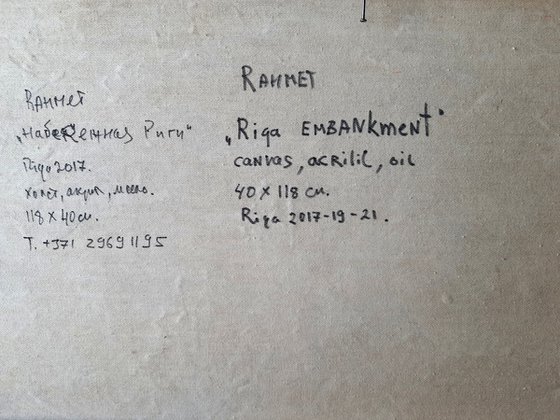 Rahmet
„Набережная Риги"
Riga 2017.
холст, акрил, масло.
118 x 40 см.
Т. +371 29691195
RAHMET
„Riga EMBANKMENT"
canvas, acrilic, oil
40 x 118 см.
Riga 2017-19-21.